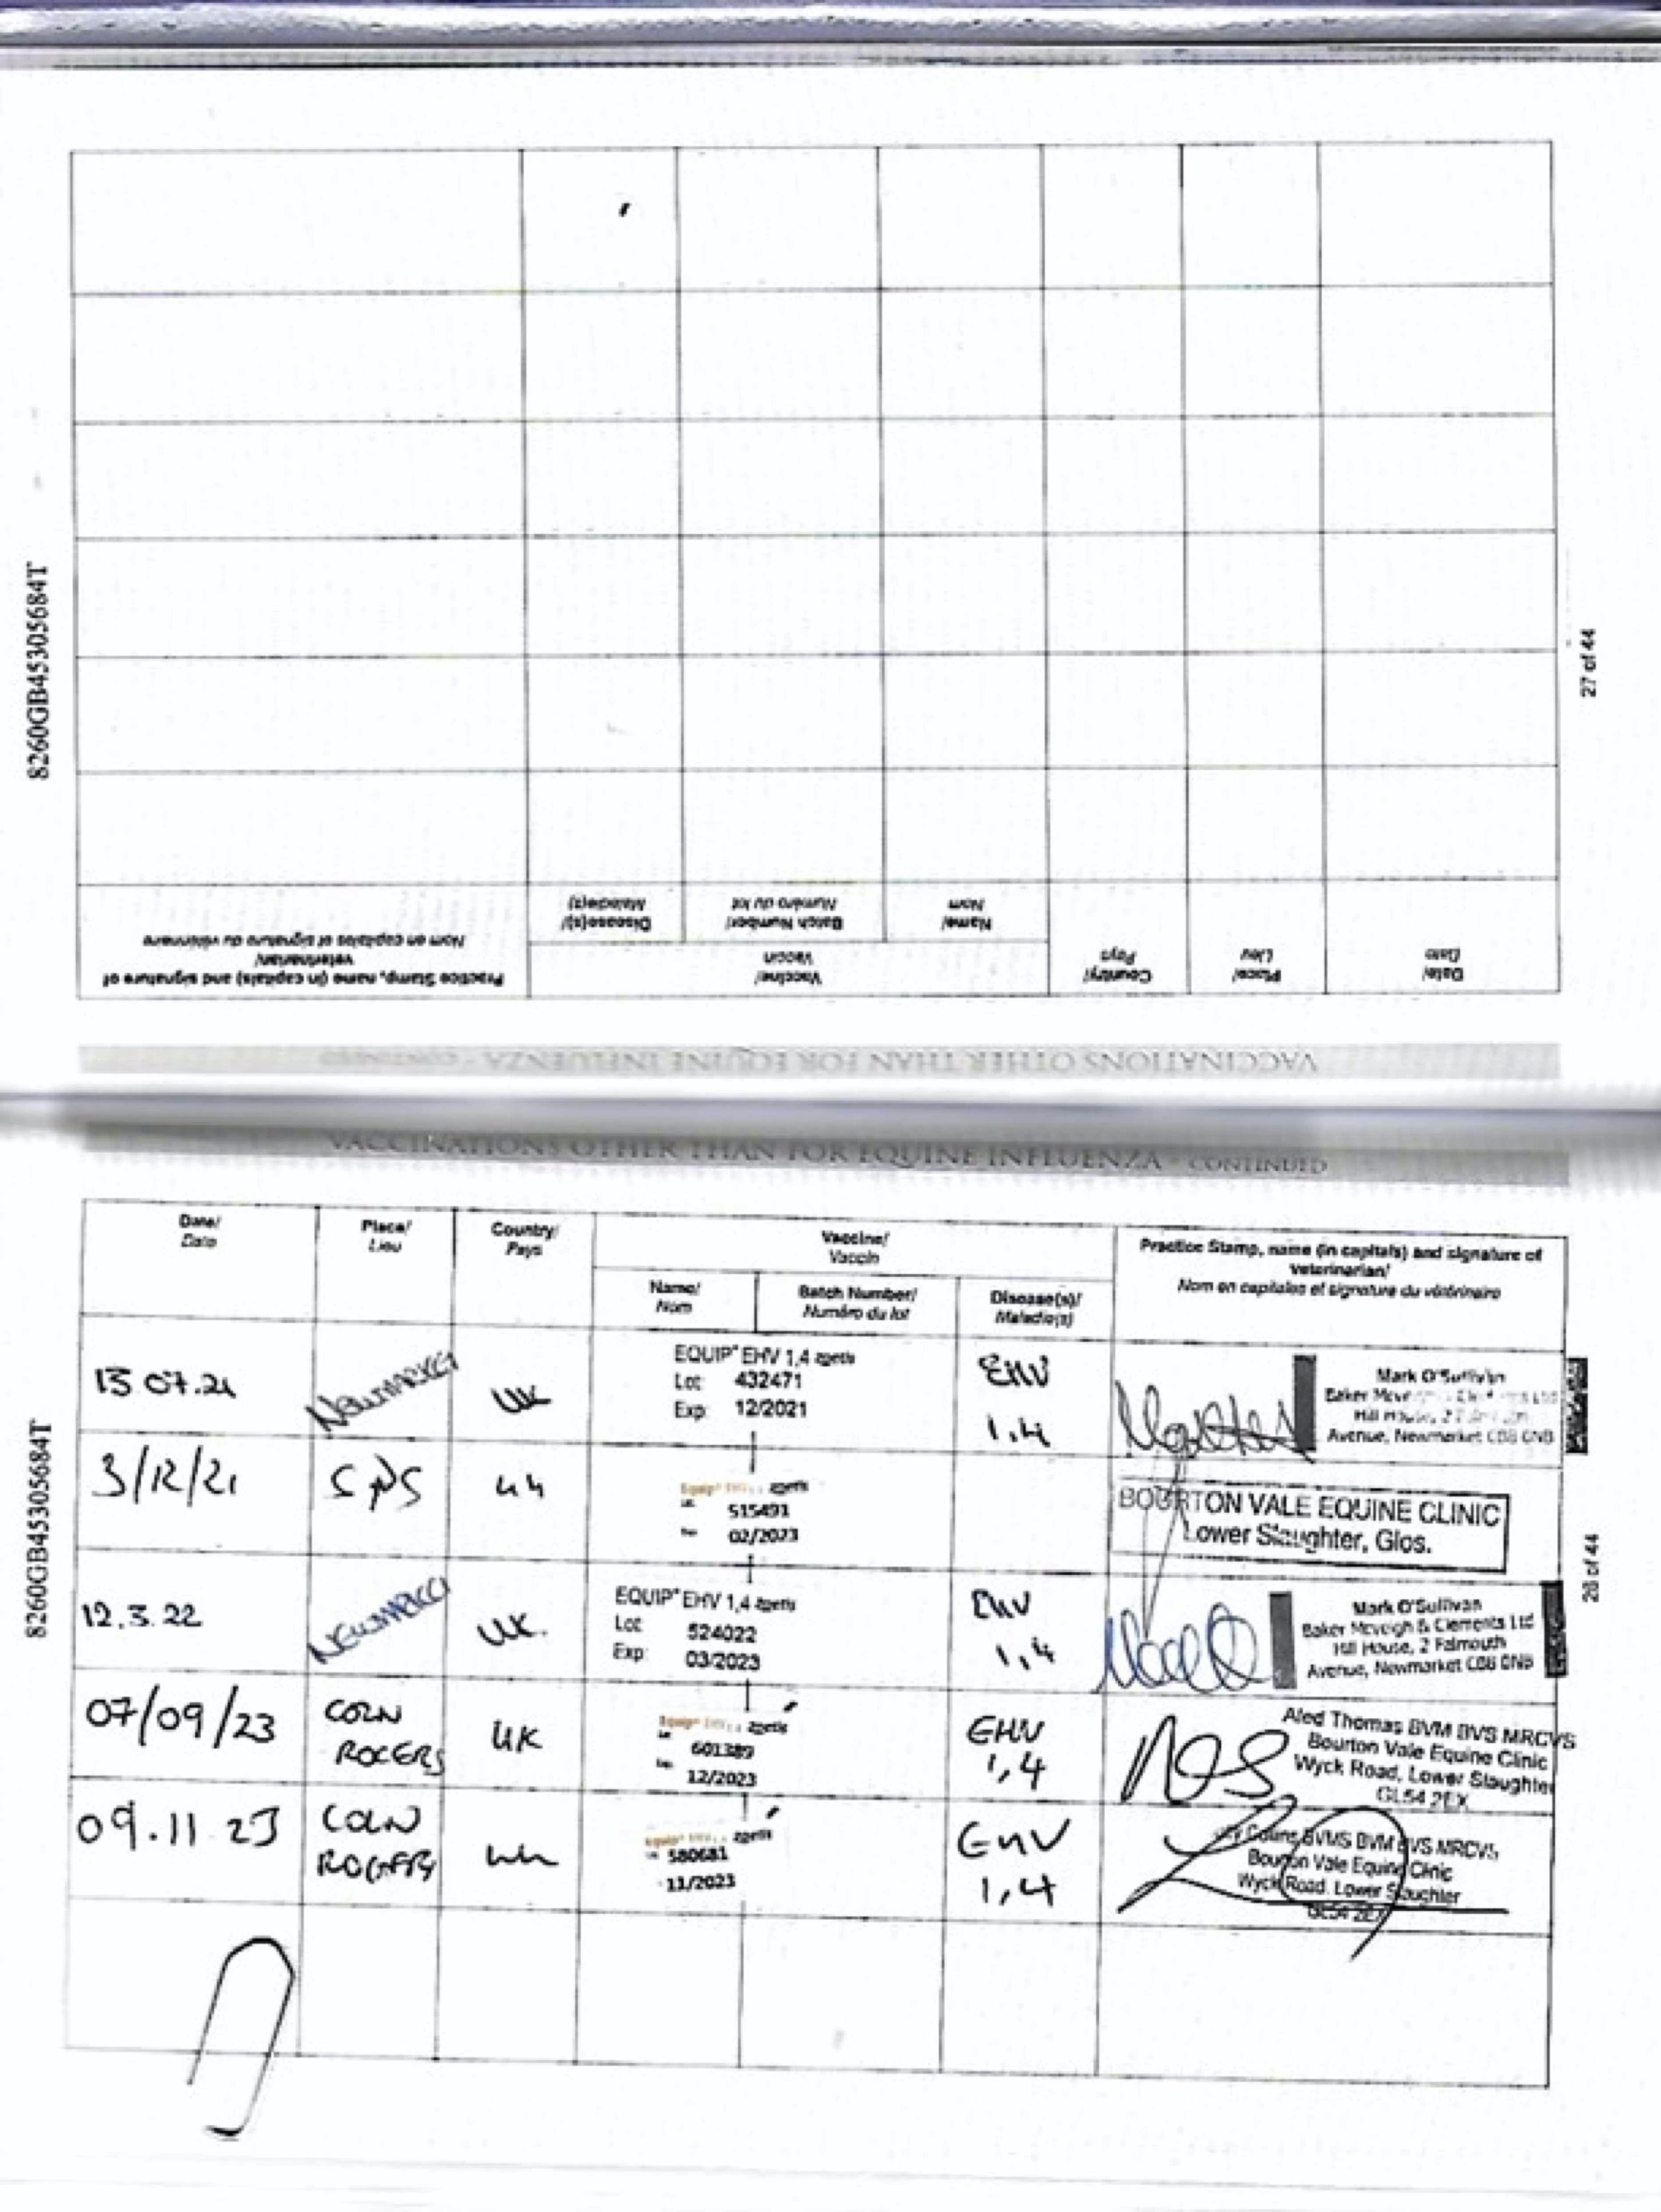 8260GB45305684T
27 of 44
Practice Stamp, name (in capitals) and signature of
veterinarian/
Nom en capitales et signature du vétérinaire
Vaccine/
Vaccin
Disease(s)/
Maladie(s)
Batch Number/
Numéro du lot
Name/
Nom
Country/
Pays
Place/
Lieu
Date/
Date
VACCINATIONS OTHER THAN FOR EQUINE INFLUENZA - CONTINUED
VACCINATIONS OTHER THAN FOR EQUINE INFLUENZA - CONTINUED
8260GB45305684T
28 of 44
Date/
Date
Place/
Lieu
Country/
Pays
Vaccine/
Vaccin
Name/
Nom
Batch Number/
Numéro du lot
Disease(s)/
Maladie(s)
Practice Stamp, name (in capitals) and signature of
veterinarian/
Nom en capitales et signature du vétérinaire
13.07.21
NEWMARKET
UK
EQUIP® EHV 1,4 zoetis
Lot: 432471
Exp: 12/2021
EHV
1,4
Mark O'Sullivan
Baker Mcveigh & Clements Ltd
Hill House, 2
Avenue, Newmarket CB8 0NB
3/12/21
UK
Equip® EHV 1,4 zoetis
515491
02/2023
BOURTON VALE EQUINE CLINIC
Lower Slaughter, Glos.
12.3.22
NEWMARKET
UK.
EQUIP® EHV 1,4 zoetis
Lot: 524022
Exp: 03/2023
EHV
1,4
Mark O'Sullivan
Baker Mcveigh & Clements Ltd
Hill House, 2 Falmouth
Avenue, Newmarket CB8 0NB
07/09/23
COLN
ROGERS
UK
Equip® EHV 1,4 zoetis
601389
12/2023
EHV
1,4
Aled Thomas BVM BVS MRCVS
Bourton Vale Equine Clinic
Wyck Road, Lower Slaughter
GL54 2EX
09.11.23
COLN
ROGERS
UK
Equip® EHV 1,4 zoetis
580681
11/2023
EHV
1,4
Collins BVMS BVM BVS MRCVS
Bourton Vale Equine Clinic
Wyck Road, Lower Slaughter
GL54 2EX